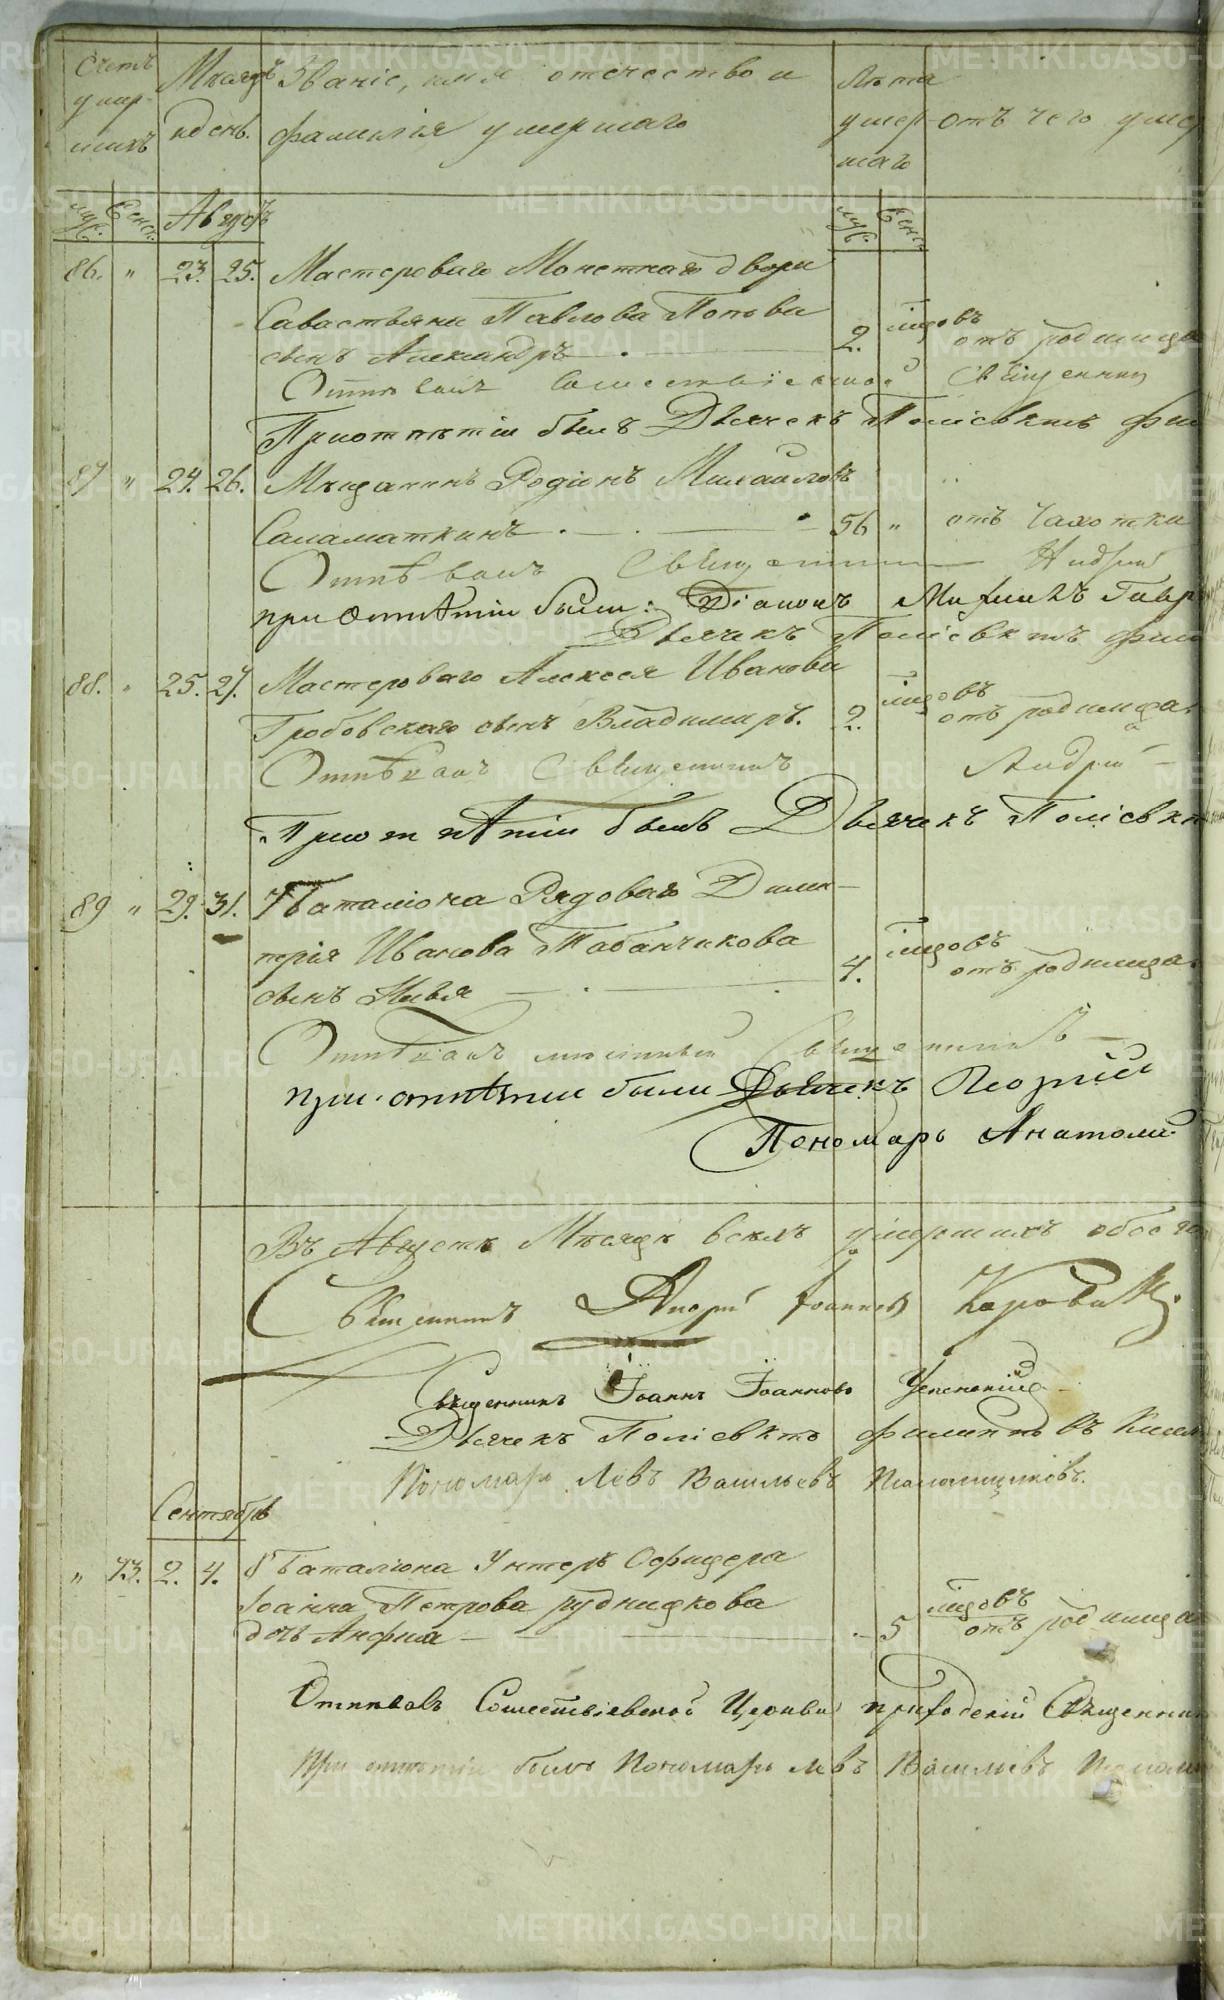 Счетъ умер- шихъ
Мѣсяцъ и день.
Званіе, имя отечество и
фамилія умершаго
Лѣта умер- шаго
отъ чего умер
муж. женс. Августъ муж. женс.
86. " 23. 25. Мастероваго Монетнаго двора
Савастьяна Павлова Попова
сынъ Александръ 2. годовъ отъ родимца
Отпѣвалъ Сошествіевской Священник
При отпѣтіи былъ Дьячекъ Поліевктъ Фил
87 " 24. 26. Мѣщанинъ Родіонъ Михайловъ
Саламаткинъ 56 " отъ чахотки
Отпѣвалъ Священникъ Андрей
при отпѣтіи были: Діаконъ Гавр
Дьячекъ Поліевктъ Фили
88. " 25. 27. Мастероваго Алексея Иванова
Гробовскаго сынъ Владимиръ. 2. годовъ отъ родимца.
Отпѣвалъ Священникъ Андрей
При отпѣтіи былъ Дьячекъ Поліевк
89 " 29. 31. Баталіона Рядоваго Дими-
трія Иванова Табанчикова
сынъ Илья 4. годовъ отъ родимца.
Отпѣвалъ Священникъ
при отпѣтіи были Дьячекъ Георгій
Пономарь Анатолій
Въ Августѣ Мѣсяцѣ всехъ умершихъ обоего
Священникъ Андрей Іоанновъ
Священникъ Іоаннъ Іоанновъ Успенскій
Дьячекъ Поліевктъ Филипповъ
Пономарь Левъ Васильевъ
Сентябрь
" 73. 2. 4. 8 Баталіона Унтеръ Офицера
Іоанна Петрова Рудницкова
дочь Анфиса 5 годовъ отъ родимца
Отпѣвалъ Сошествіевской Церкви приходскій Священник
При отпѣтіи былъ Пономарь Левъ Васильевъ
METRIKI.GASO-URAL.RU